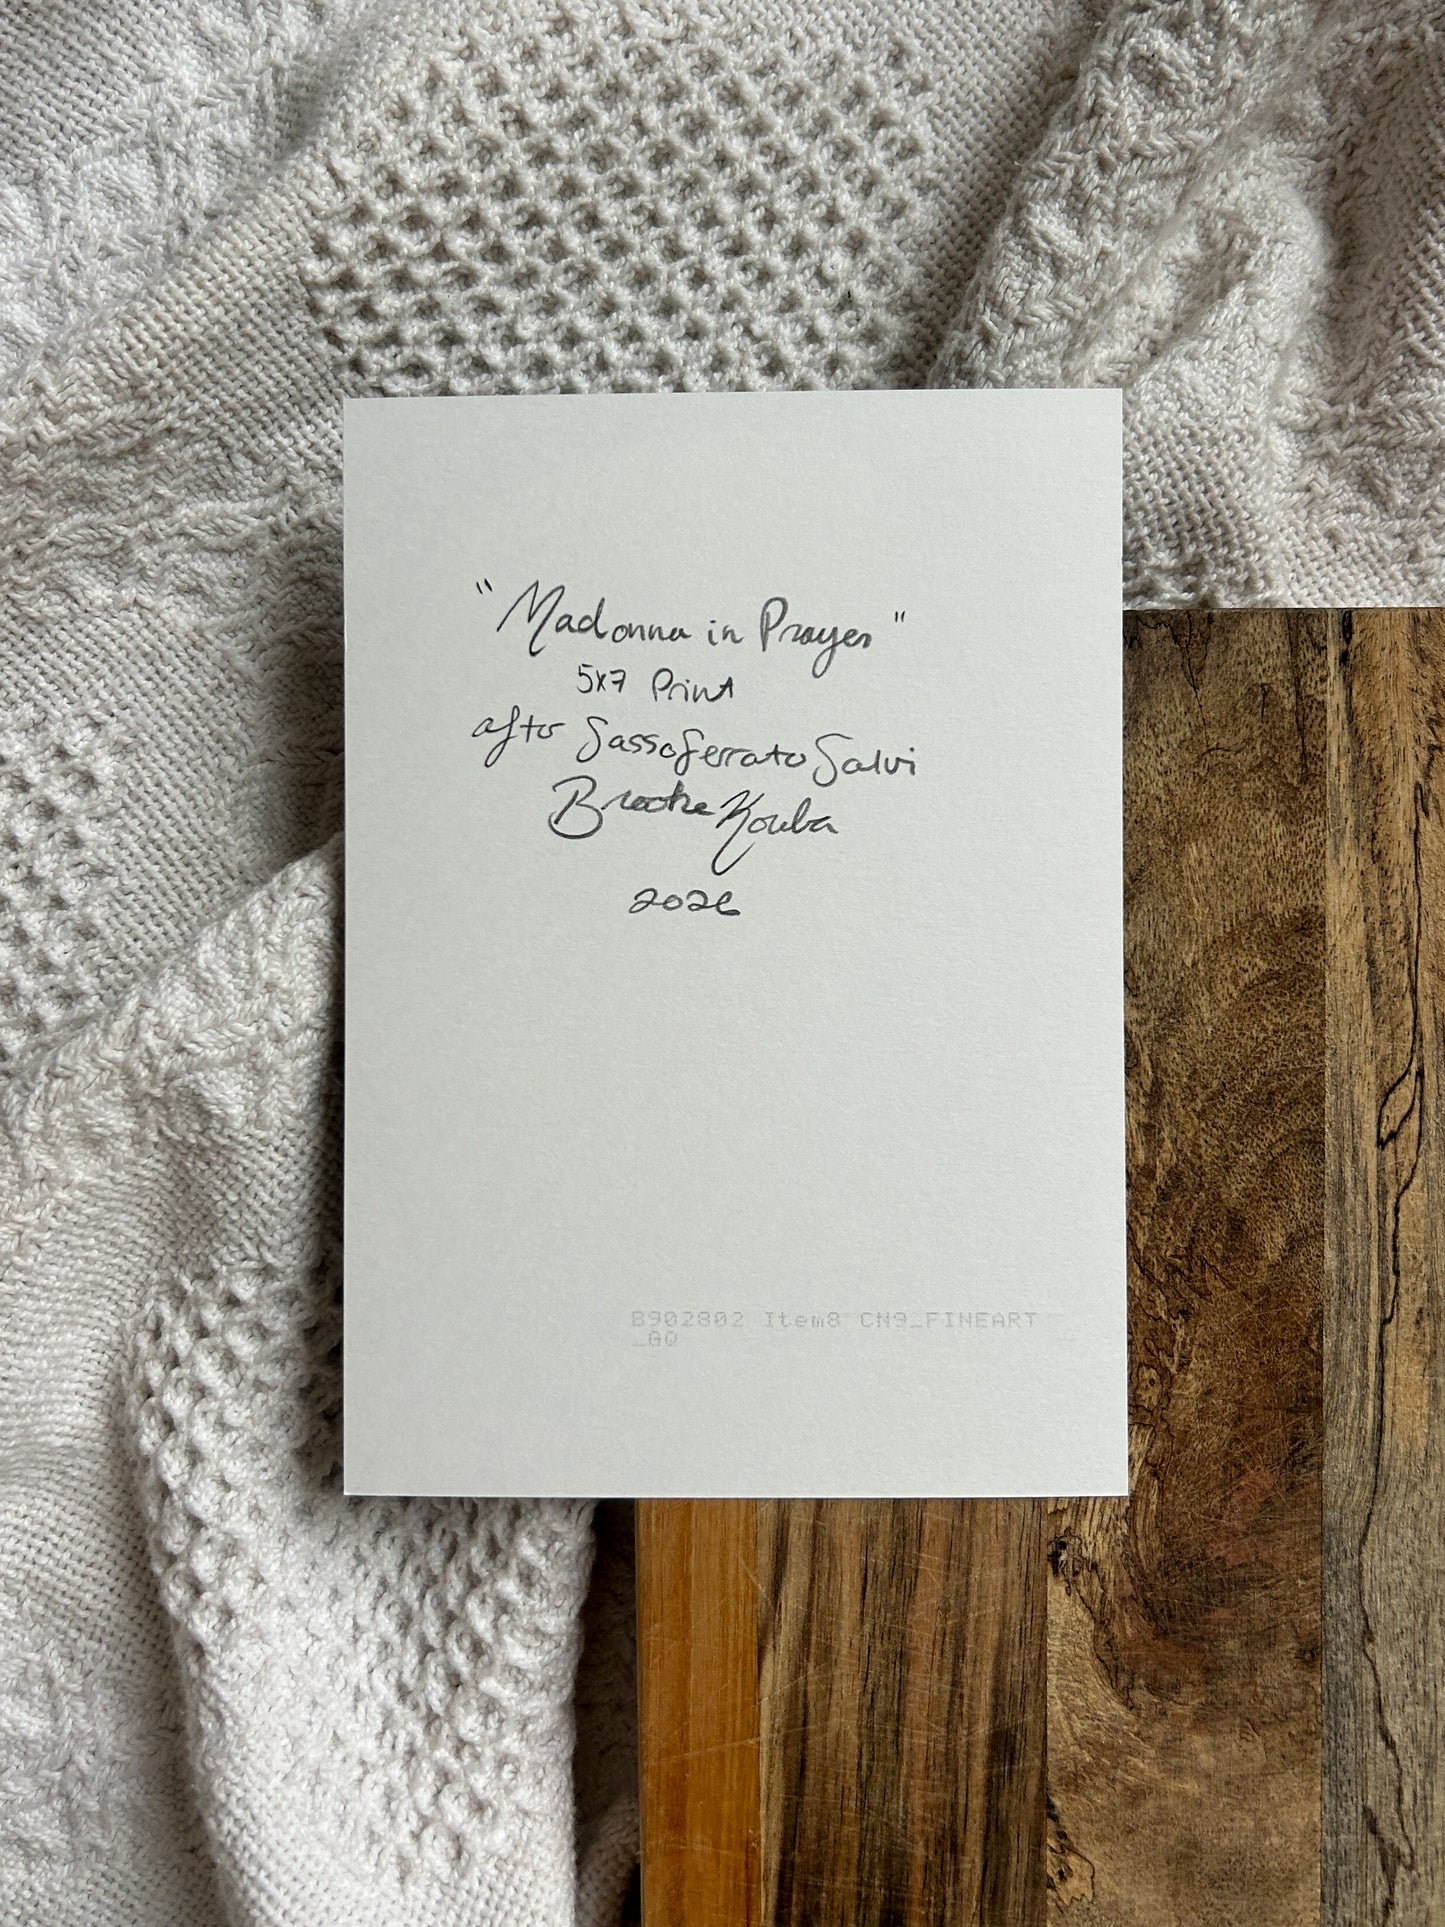 "Madonna in Prayer"
5x7 Print
after Sassoferrato Salvi
Brooke Kouba
2026
B902802 Item8 CN9_FINEART
_GO